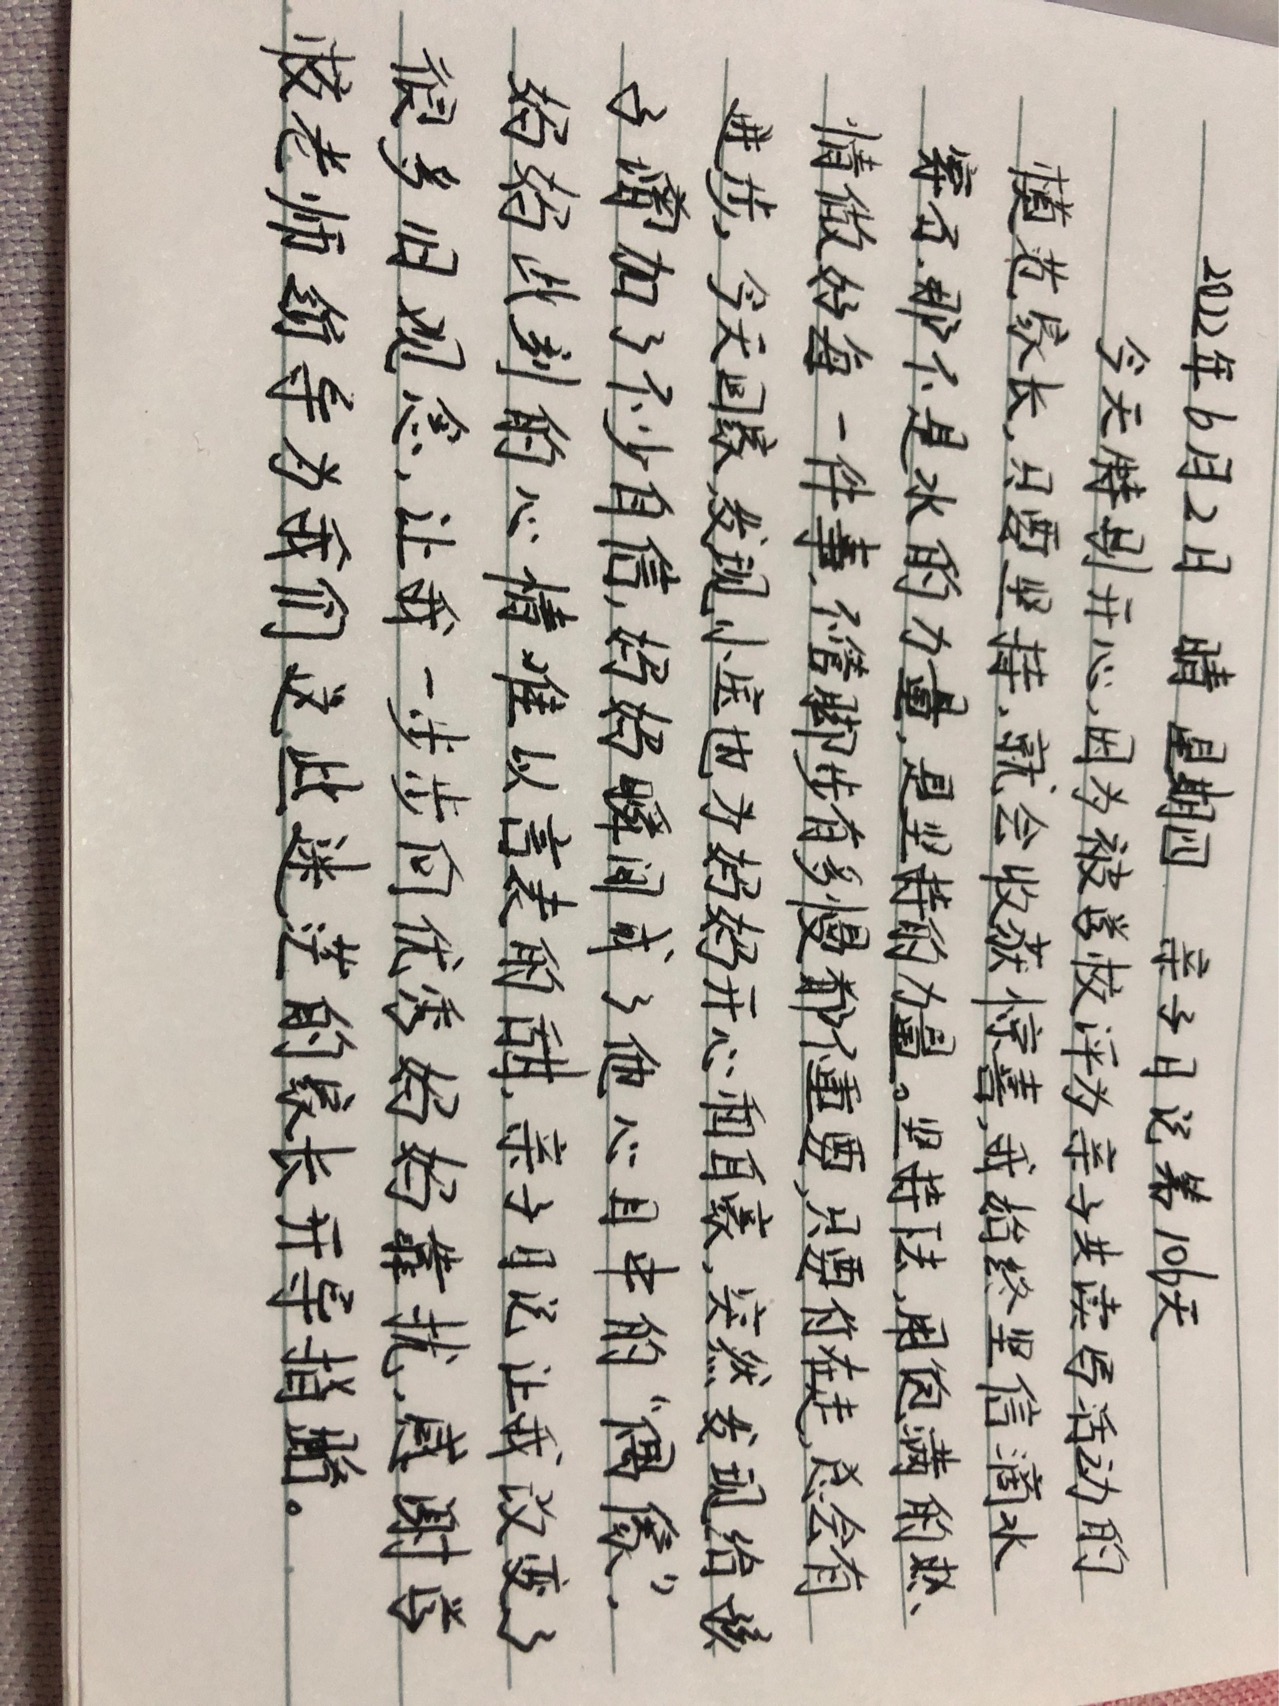 2022年6月2日 晴 星期四 亲子日记第106天
今天特别开心,因为被学校评为亲子共读写活动的
模范家长,只要坚持,就会收获惊喜,我始终坚信滴水
穿石.那不是水的力量,是坚持的力量。坚持法,用饱满的热、
情做好每一件事.不管脚步有多慢都不重要,只要你在走,总会有
进步,今天回家,发现小宝也为妈妈开心和自豪,突然发现给孩
子增加了不少自信,妈妈瞬间成了他心目中的“偶像”,
妈妈此刻的心情难以言表的酣,亲子日记让我改变了
很多旧观念,让我一步步向优秀妈妈靠拢,感谢学
校老师给予为我们这些迷茫的家长开导指路。